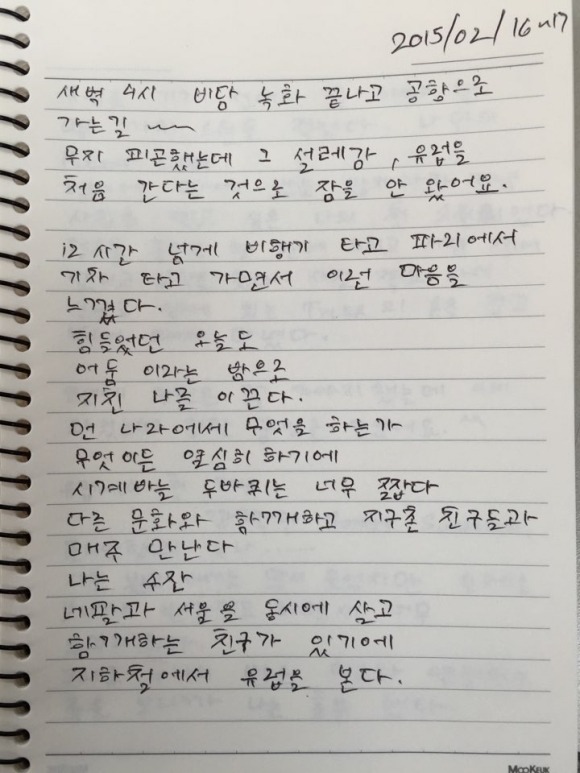 2015/02/16~17
새벽 4시 비담 녹화 끝나고 공항으로
가는길 ~~
무지 피곤했는데 그 설레감, 유럽을
처음 간다는 것으로 잠을 안 왔어요.
12 시간 넘게 비행기 타고 파리에서
기차 타고 가면서 이런 마음을
느겼다.
힘들었던 오늘도
어둠 이라는 밤으로
지친 나를 이끈다.
먼 나라에세 무엇을 하는가
무엇이든 열심히 하기에
시계바늘 두바퀴는 너무 짧다
다른 문화와 함께하고 지구촌 친구들과
매주 만난다
나는 수잔
네팔과 서울을 동시에 살고
함께하는 친구가 있기에
지하철에서 유럽을 본다.
MOOKEUK